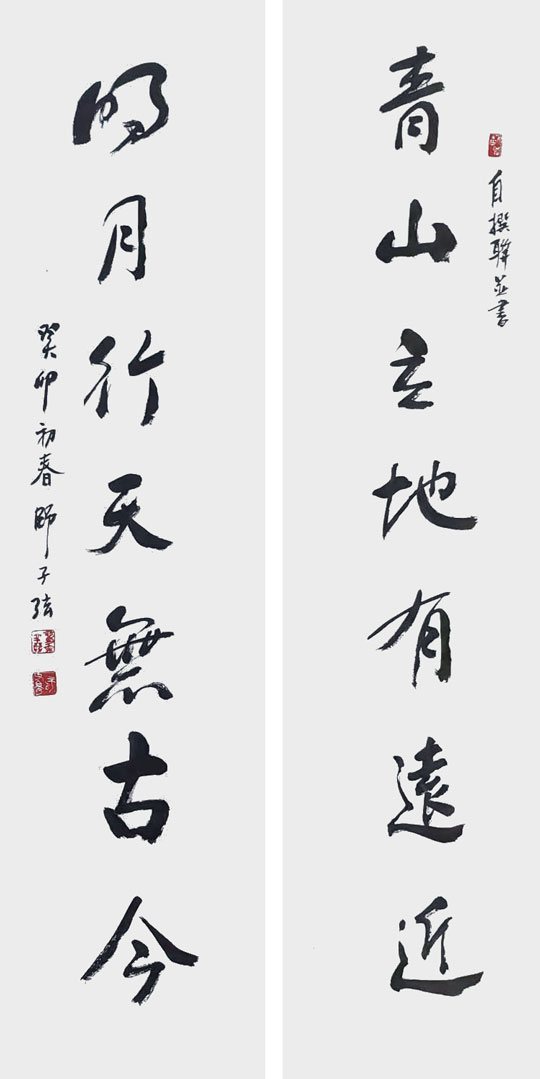 自撰聯並書
青山立地有遠近
明月行天無古今
癸卯初春師子弦